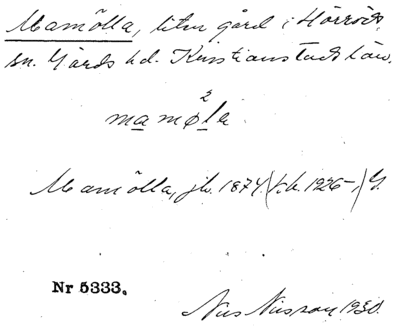 Mamölla, liten gård i Hörröds
sn. Gärds hd. Kristianstads län.
2
mamøla
Mamölla, jb. 1874 (k.b. 1926-,) G.
Nr 5333.
Nils Nilsson 1930.